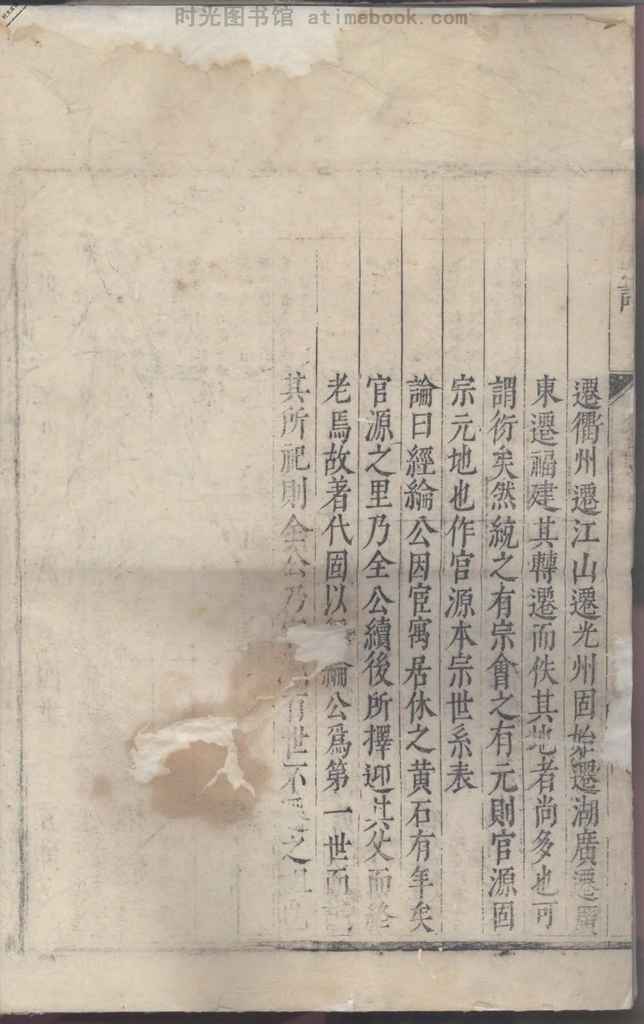 时光图书馆 atimebook.com
遷衢州遷江山遷光州固始遷湖廣遷
東遷福建其轉遷而佚其地者尚多也可
謂衍矣然統之有宗會之有元則官源固
宗元地也作官源本宗世系表
論曰經綸公因宦寓居休之黄石有年矣
官源之里乃全公續後所擇迎其父而終
老焉故著代固以公爲第一世而
其所祀則全公乃百世不遷之